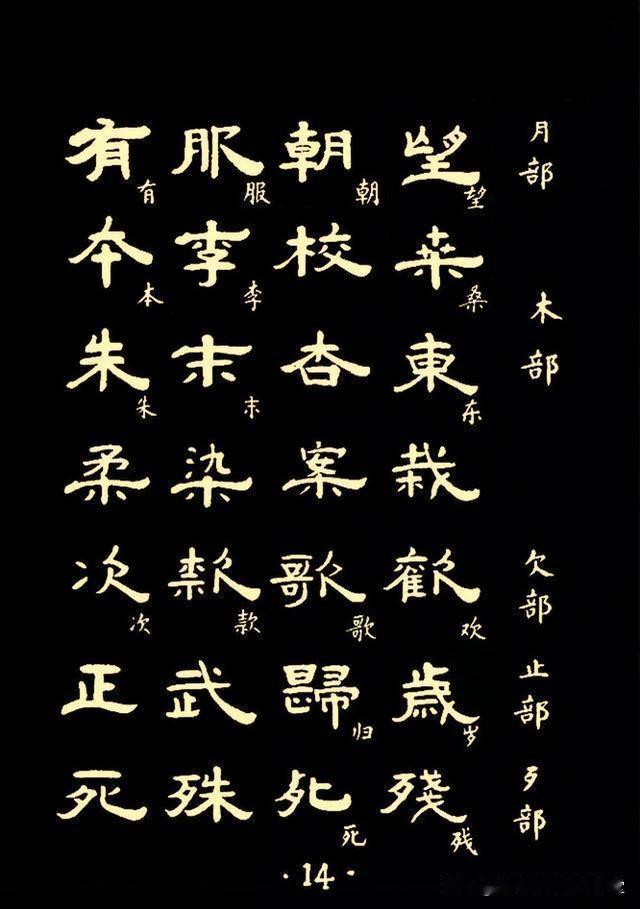 有 服 朝 望 月部
有 服 朝 望
本 李 校 桑 木部
本 李 桑
朱 末 杏 東
朱 末 东
柔 染 案 栽
次 款 歌 歡 欠部
次 款 歌 欢
正 武 歸 歲 止部
归 岁
死 殊 死 殘 歹部
死 残
·14·